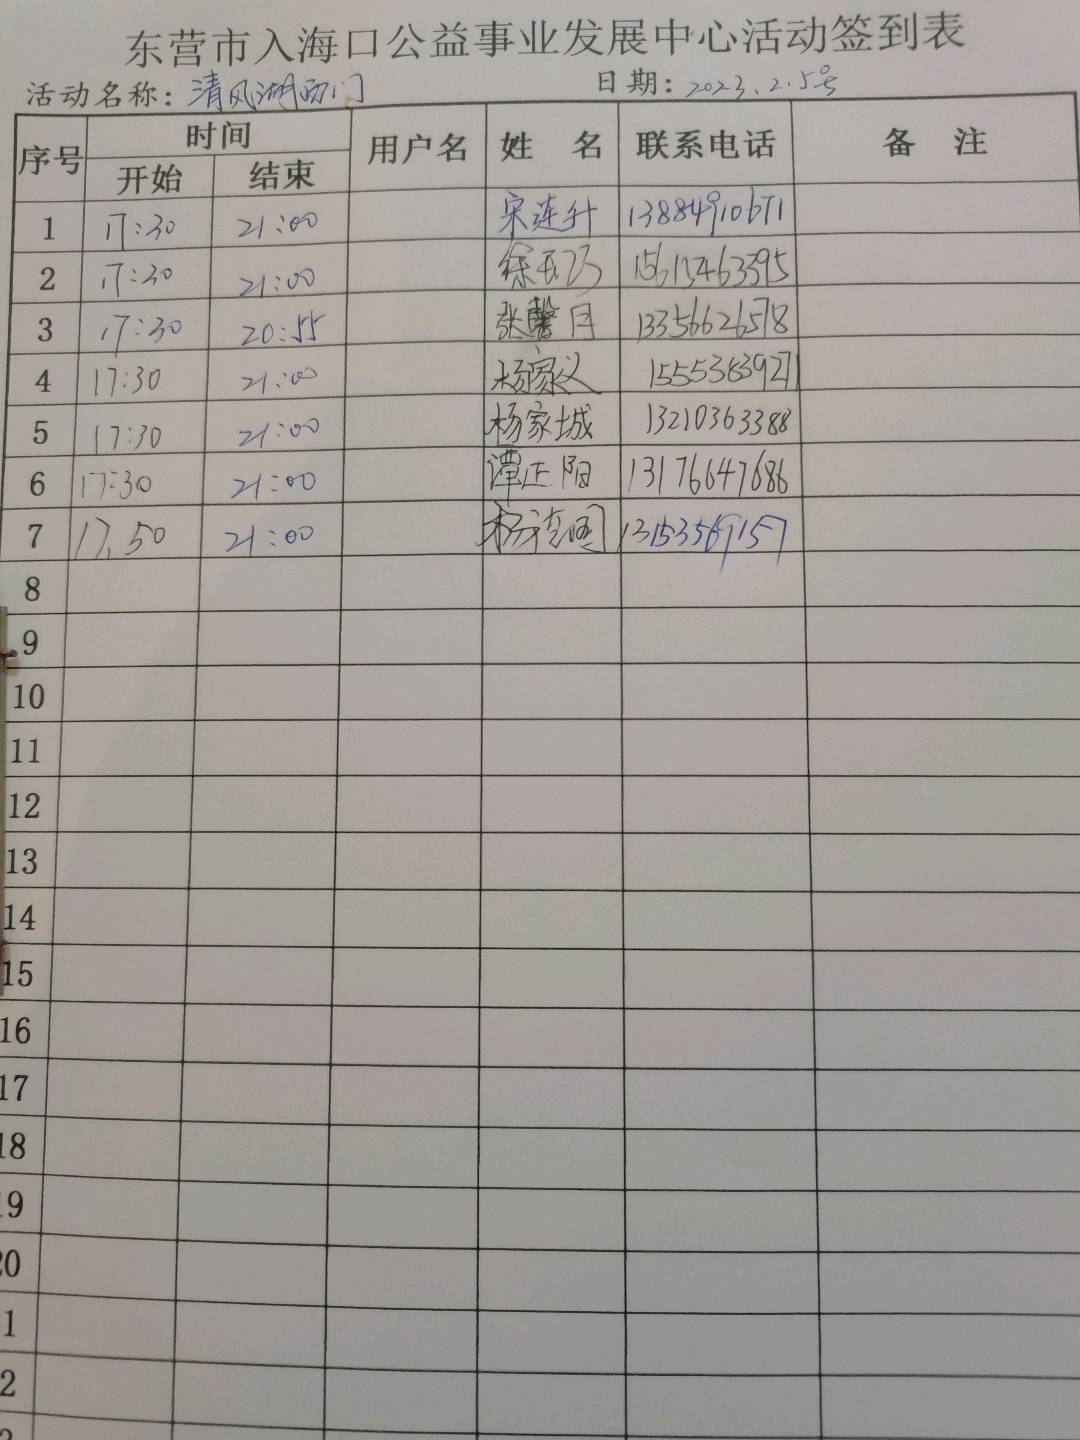 东营市入海口公益事业发展中心活动签到表
活动名称：清风湖西门 日期：2023.2.5号
序号 时间 用户名 姓 名 联系电话 备 注
开始 结束
1 17:30 21:00 宋连升 13884910671
2 17:30 21:00 徐 15615463395
3 17:30 20:55 张馨月 13356626578
4 17:30 21:00 杨家义 15553639271
5 17:30 21:00 杨家城 13210363388
6 17:30 21:00 谭正阳 13176647686
7 17.50 21:00 杨 13153569157
8
9
10
11
12
13
14
15
16
17
18
19
20
1
2